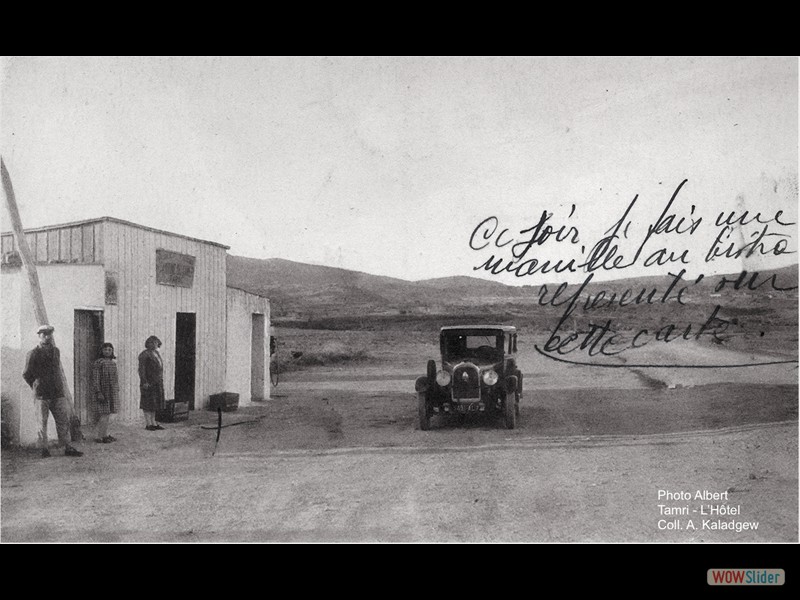 Ce soir je fais une
manille au bistro
représenté sur
cette carte.
Photo Albert
Tamri - L'Hôtel
Coll. A. Kaladgew
WOWSlider